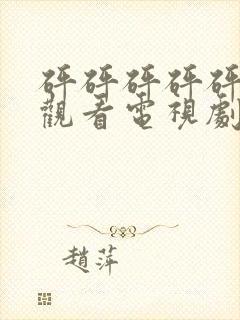 砰砰砰砰砰
觀看電視劇
趙萍